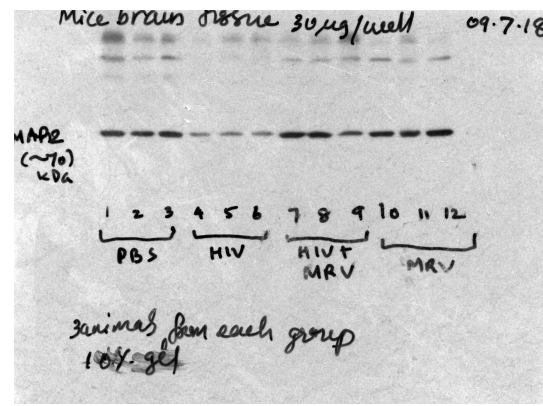 Mice brain tissue 30 µg/well 09.7.18
MAP2
(~70)
kDa
1 2 3 4 5 6 7 8 9 10 11 12
PBS HIV HIV+ MRV
MRV
3 animals from each group
10% gel